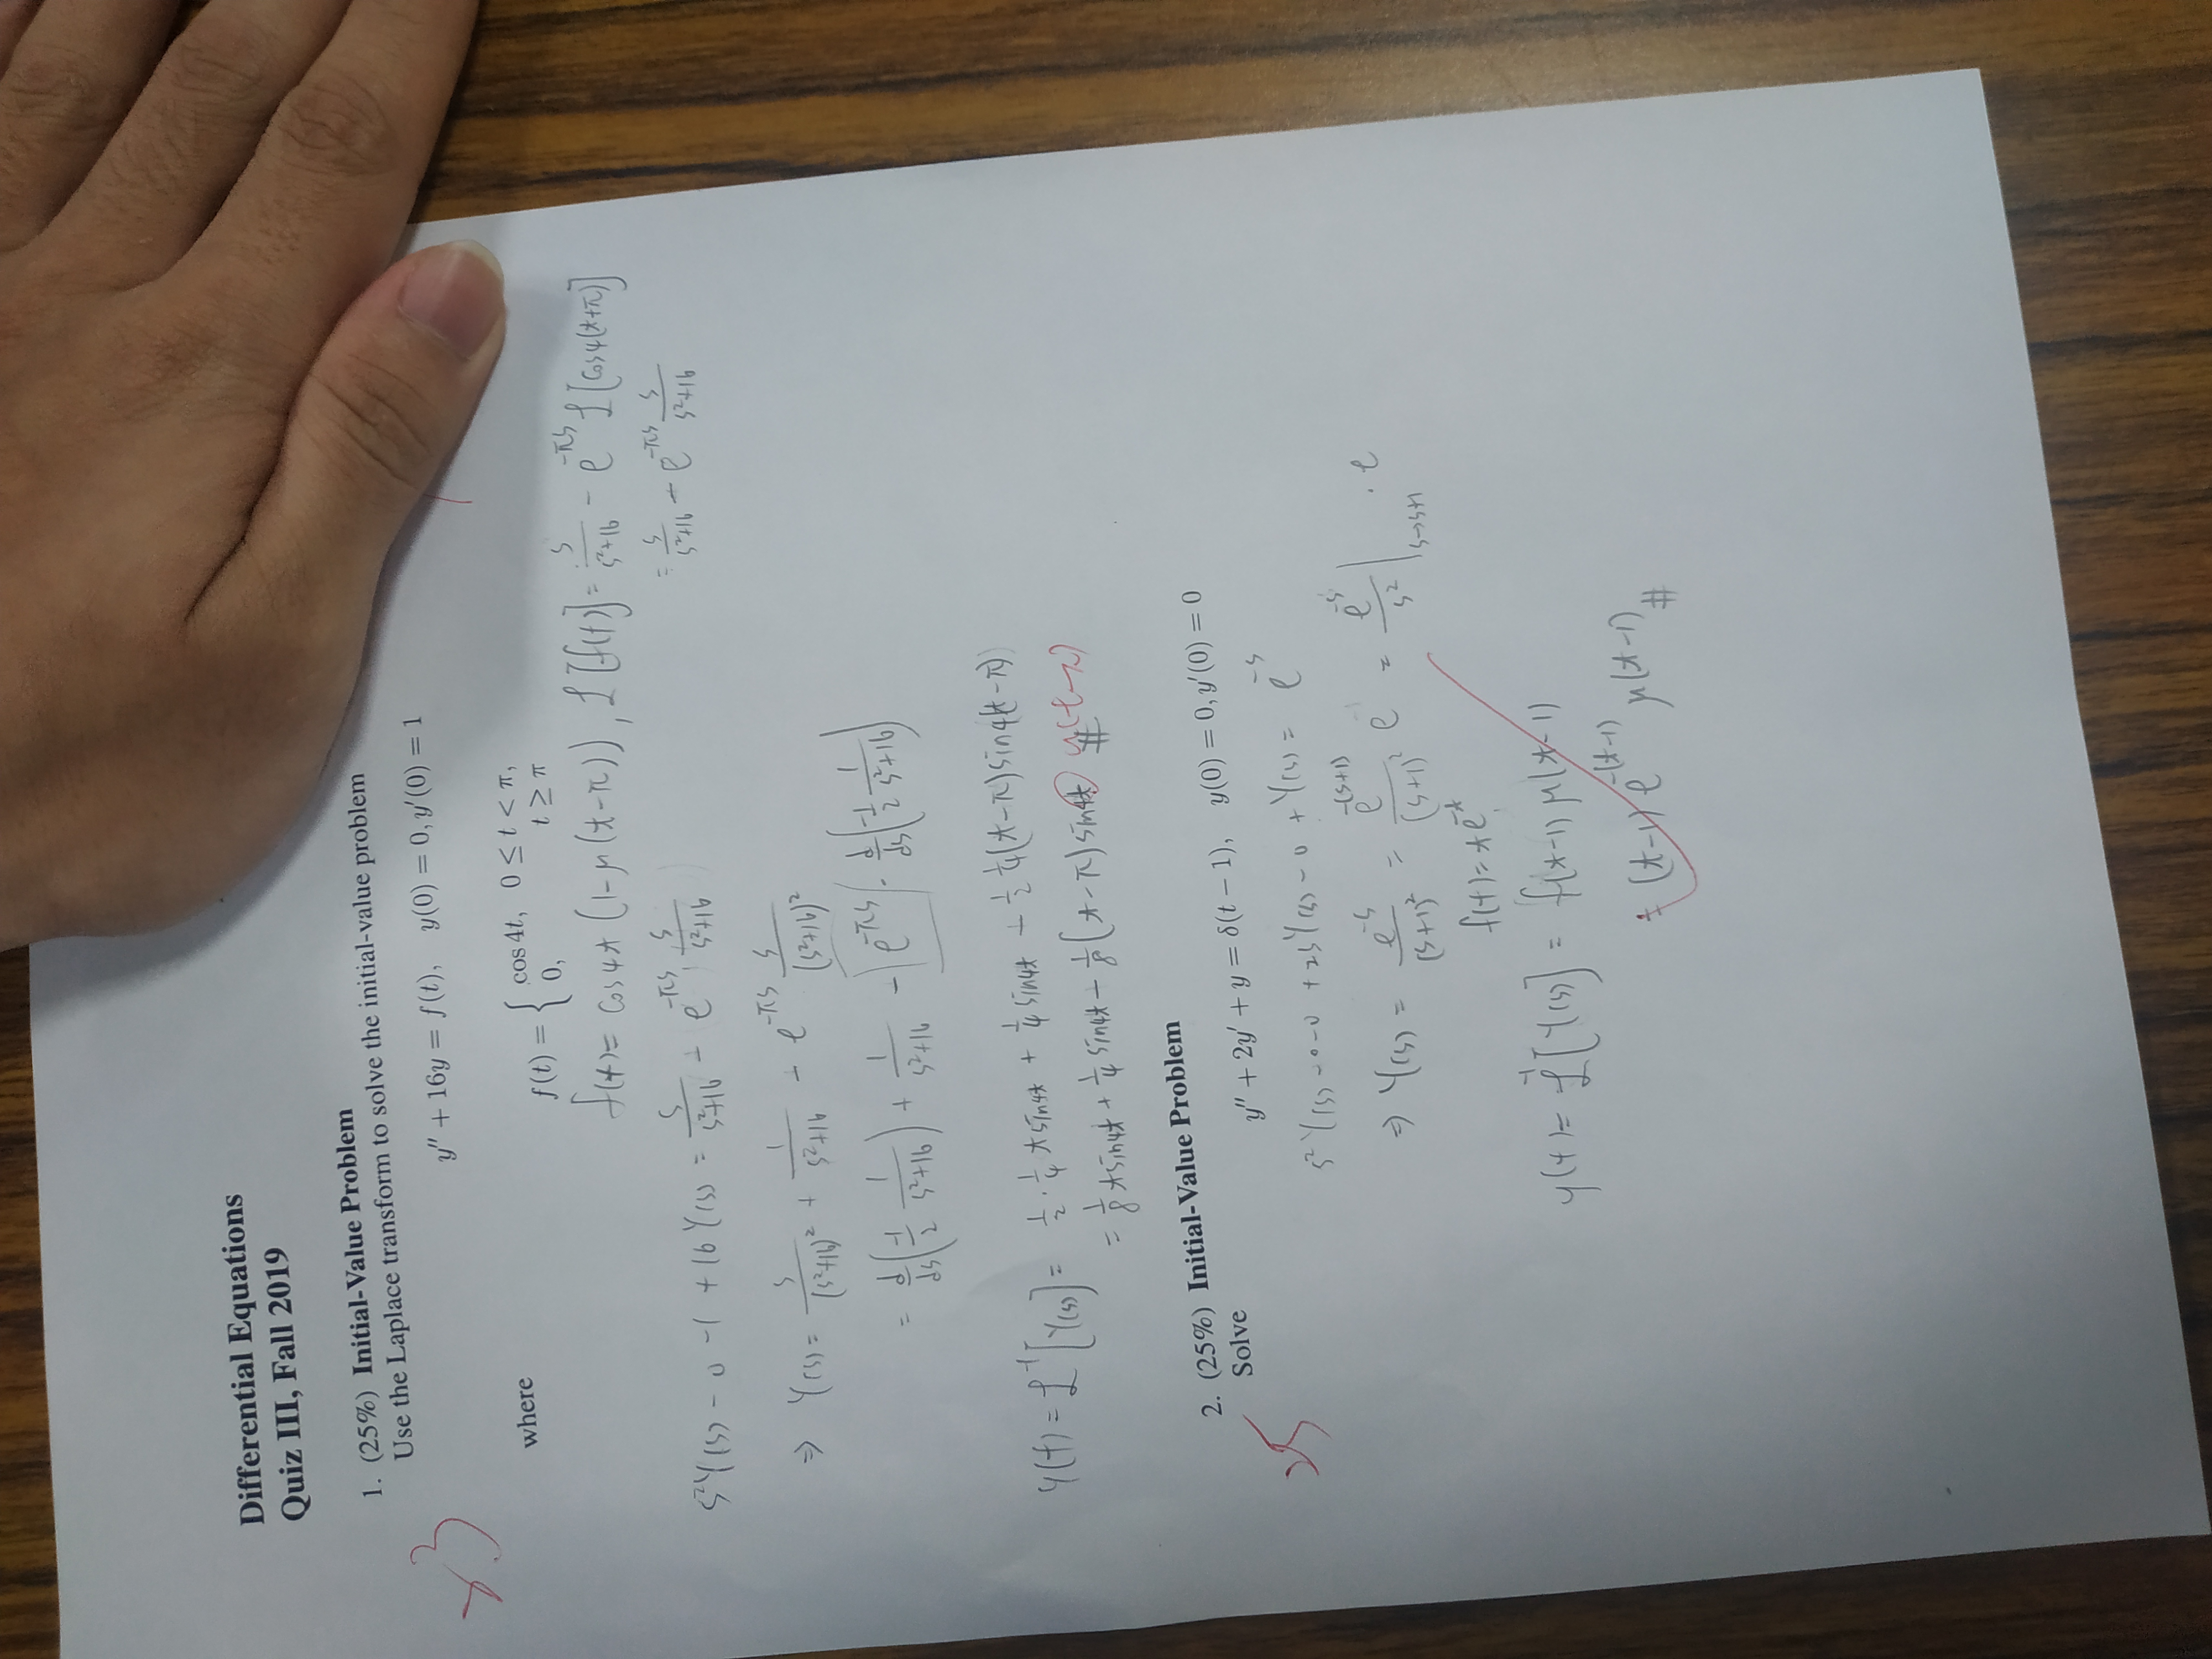 Differential Equations
Quiz III, Fall 2019
1. (25%) Initial-Value Problem
Use the Laplace transform to solve the initial-value problem
y″ + 16y = f(t), y(0) = 0, y′(0) = 1
23
where
f(t) = { cos 4t, 0 ≤ t < π,
0, t ≥ π
f(t) = cos4t (1-μ(t-π)), ℒ[f(t)] = s/(s²+16) - e^(-πs) ℒ[cos4(t+π)]
= s/(s²+16) - e^(-πs) s/(s²+16)
s²Y(s) - 0 - 1 + 16Y(s) = s/(s²+16) - e^(-πs) s/(s²+16)
⇒ Y(s) = s/(s²+16)² + 1/(s²+16) - e^(-πs) s/(s²+16)²
= d/ds(-1/2 1/(s²+16)) + 1/(s²+16) - e^(-πs) · d/ds(-1/2 1/(s²+16))
y(t) = ℒ⁻¹[Y(s)] = 1/2 · 1/4 t sin4t + 1/4 sin4t - 1/2 1/4 (t-π) sin4(t-π)
= 1/8 t sin4t + 1/4 sin4t - 1/8 (t-π) sin4t # u(t-π)
2. (25%) Initial-Value Problem
Solve
y″ + 2y′ + y = δ(t − 1), y(0) = 0, y′(0) = 0
25
s²Y(s) - 0 - 0 + 2sY(s) - 0 + Y(s) = e^(-s)
⇒ Y(s) = e^(-s)/(s+1)² = e^(-(s+1))/(s+1)² e = e^(-s)/s² |s→s+1 · e
f(t) = te^(-t)
y(t) = ℒ⁻¹[Y(s)] = f(t-1) μ(t-1)
= (t-1) e^(-(t-1)) μ(t-1) #